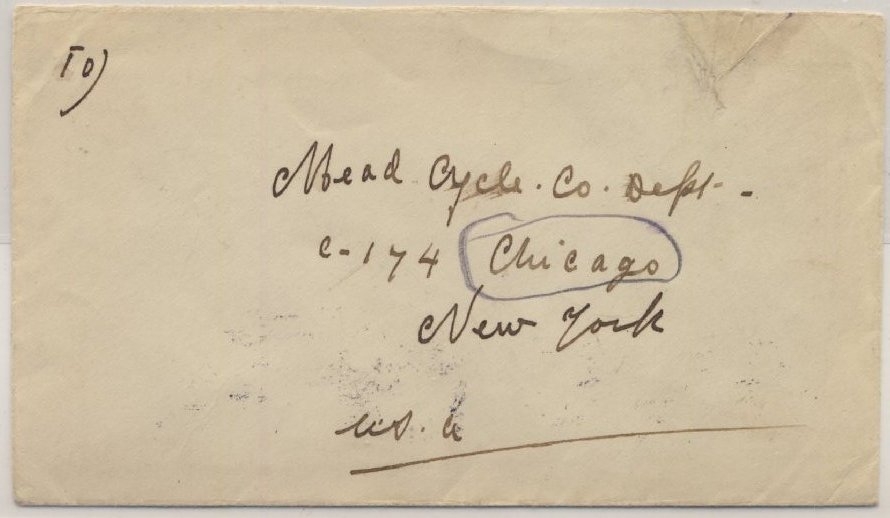 To)
Mead Cycle. Co. Dept-
C-174 Chicago
New York
U.S.A